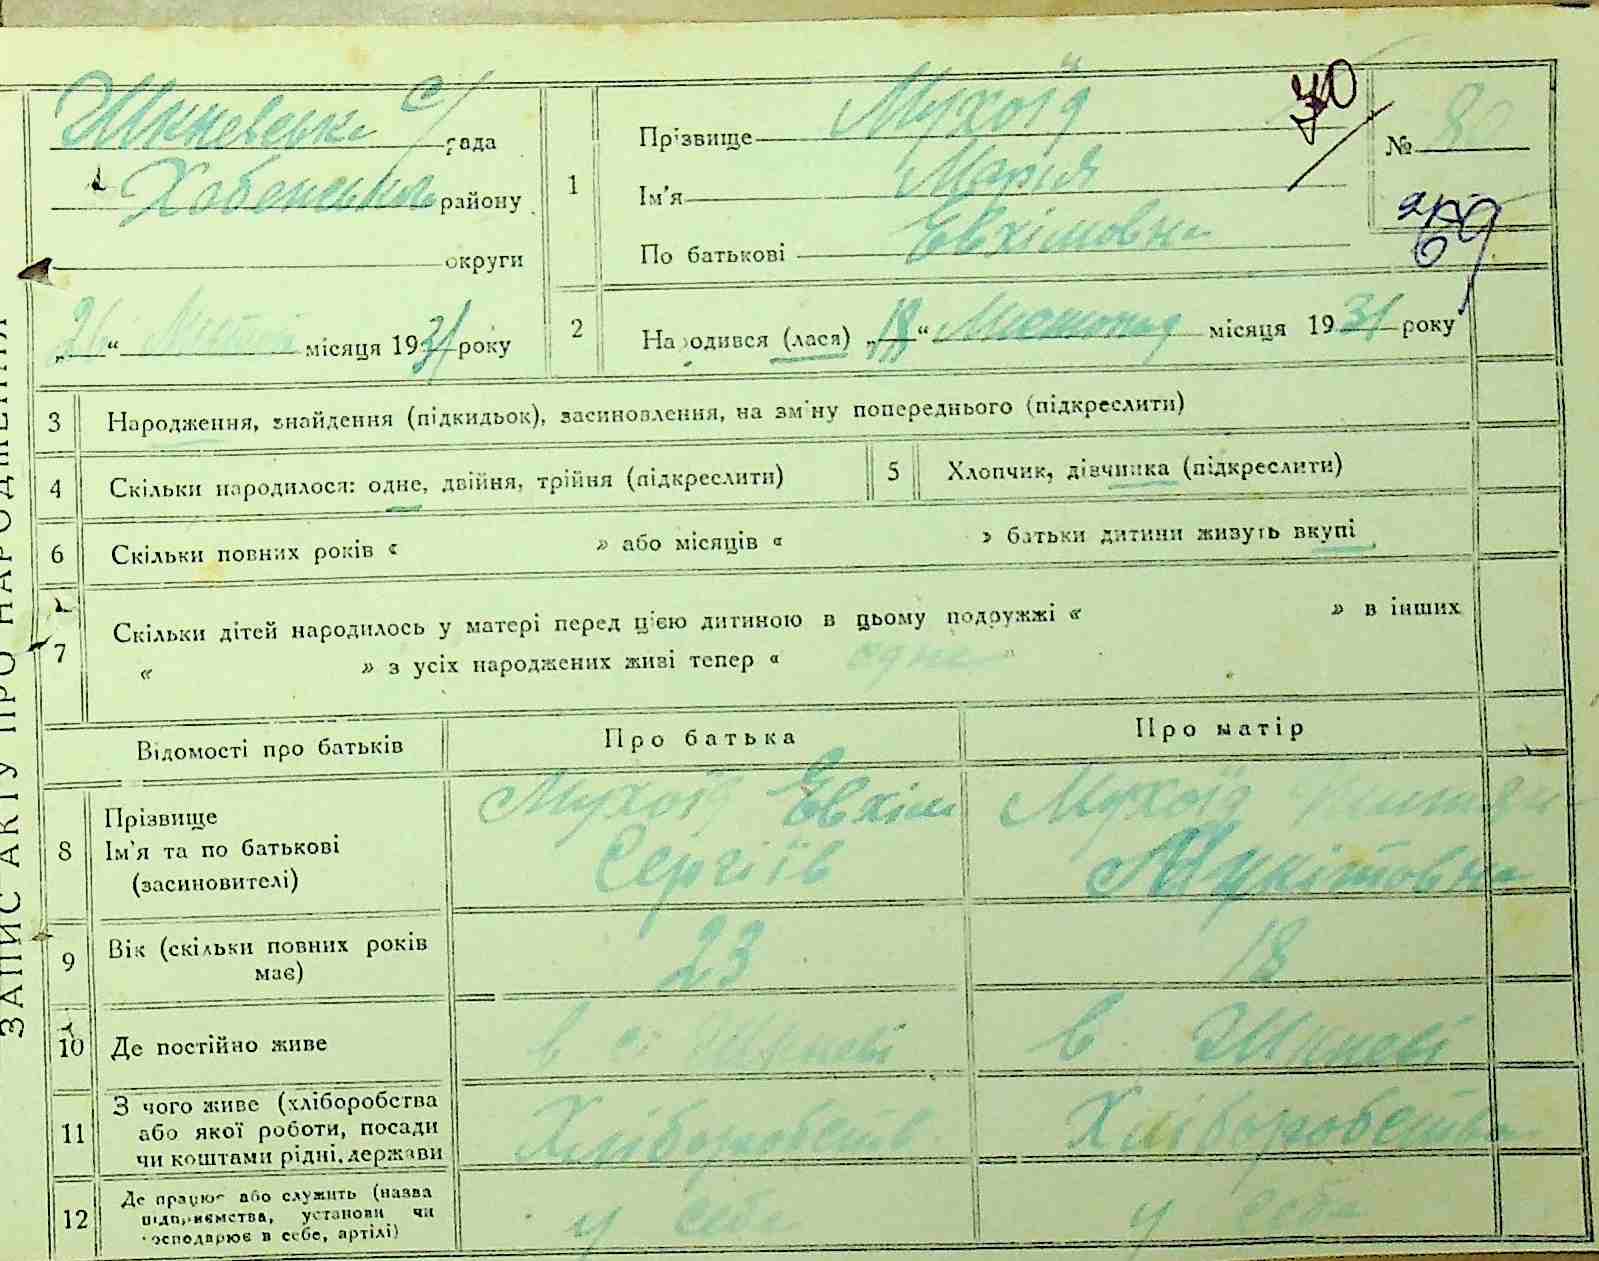 ЗАПИС АКТУ ПРО НАРОДЖЕННЯ
с/рада
району
округи
" " місяця 1931 року
1
Прізвище Мухоїд
Ім'я Марія
По батькові Евхімовна
70
№ 80
69
2
Народився (лася) „18“ Листопад місяця 1931 року
3 Народження, знайдення (підкидьок), засиновлення, на зміну попереднього (підкреслити)
4 Скільки народилося: одне, двійня, трійня (підкреслити)
5 Хлопчик, дівчинка (підкреслити)
6 Скільки повних років « » або місяців « » батьки дитини живуть вкупі
7 Скільки дітей народилось у матері перед цією дитиною в цьому подружжі « » в інших
« » з усіх народжених живі тепер « одне »
Відомості про батьків
Про батька
Про матір
8 Прізвище
Ім'я та по батькові
(засиновителі)
Мухоїд Евхім
Сергіїв
Мухоїд
9 Вік (скільки повних років
має)
23
18
10 Де постійно живе
в с.
в
11 З чого живе (хліборобства
або якої роботи, посади
чи коштами рідні, держави
Хліборобств
Хліборобства
12 Де працює або служить (назва
підприємства, установи чи
господарює в себе, артілі)
у себе
у себе